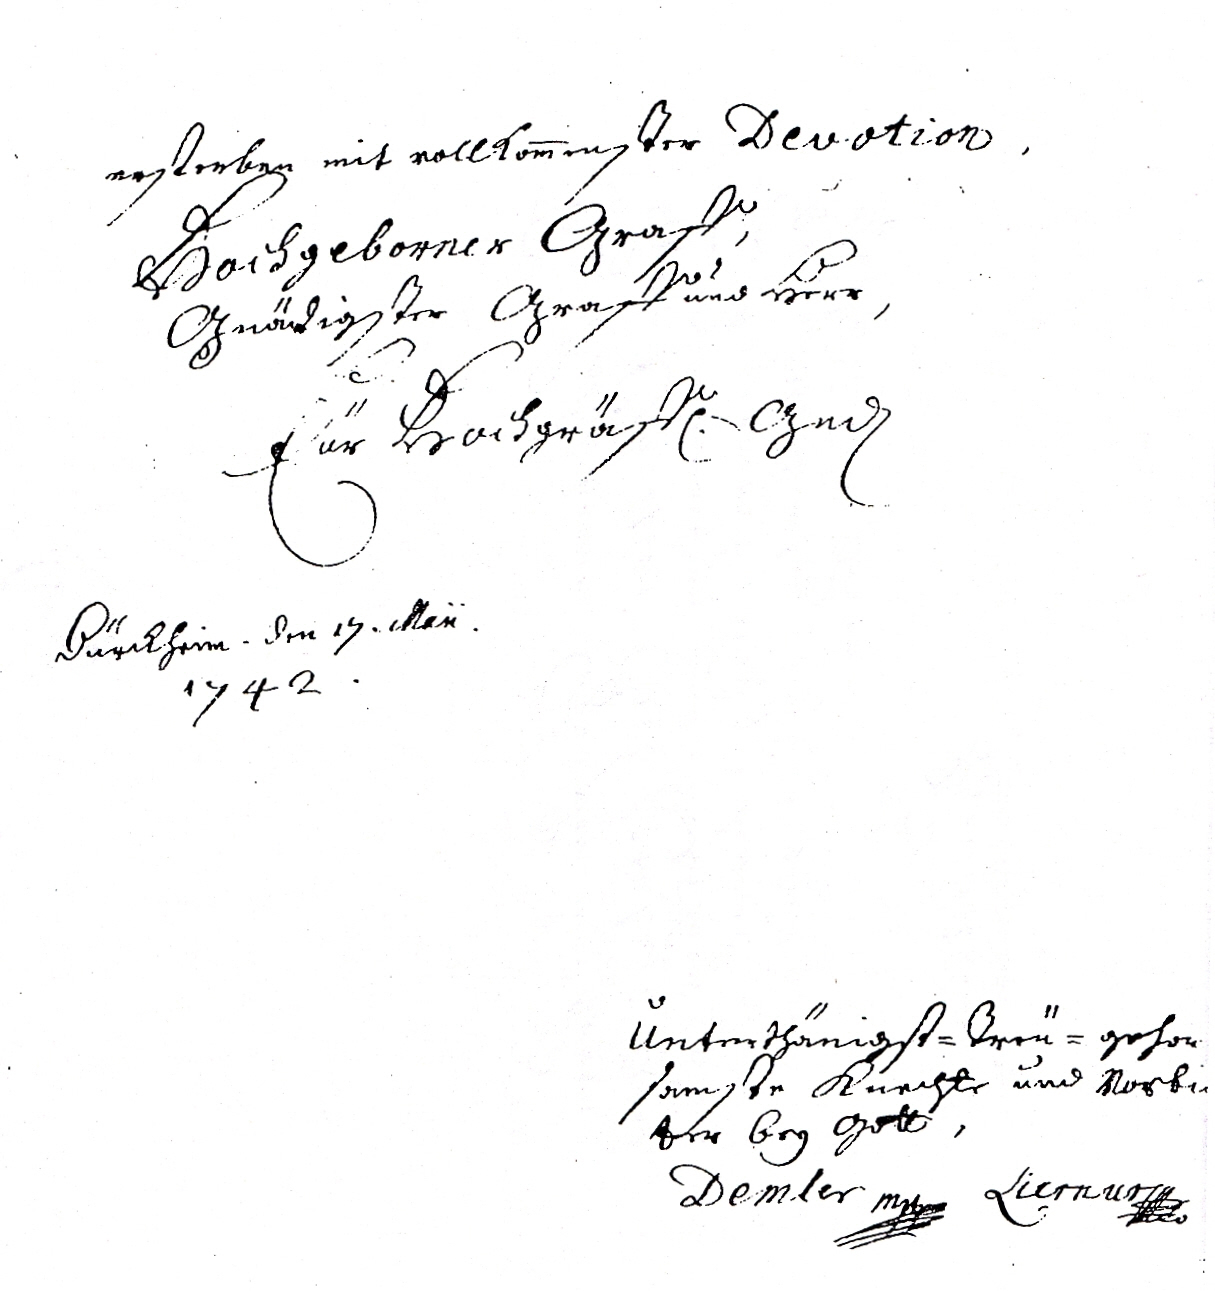 ersterben mit vollkom̅enster Devotion,
Hochgeborner Graff,
Gnädigster Graff und Herr,
Eür Hochgräffl. Gnd
Dürckheim. den 17. Maii.
1742.
Unterthänigst= Treü= gehor
samste Knechte und Vorbi
tter bey Gott,
Demler mpp Liernur